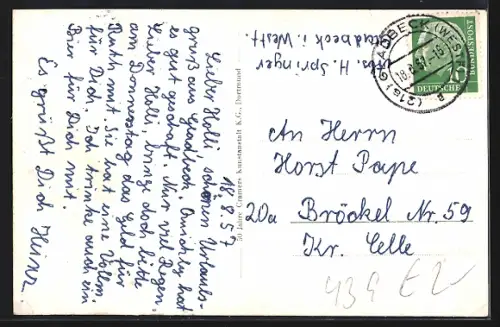 18.8.57
Lieber Holli, schönen Urlaubs-
gruß aus Gladbeck. Omichly hat
es gut geschafft. Nur viel Regen.
Lieber Holli, bringe doch bitte
am Donnerstag das Geld für
Ruth mit. Sie hat eine Vollm.
für Dich. Ich trinke auch ein
Bier für Dich mit.
Es grüßt Dich Heinz
50 Jahre Cramers Kunstanstalt K.G., Dortmund
Abs. H. Springer
Gladbeck i. Westf.
(21a) GLADBECK (WESTF)
18.8.57.-18
a
10
DEUTSCHE BUNDESPOST
An Herrn
Horst Pape
20a Bröckel Nr. 59
Kr. Celle